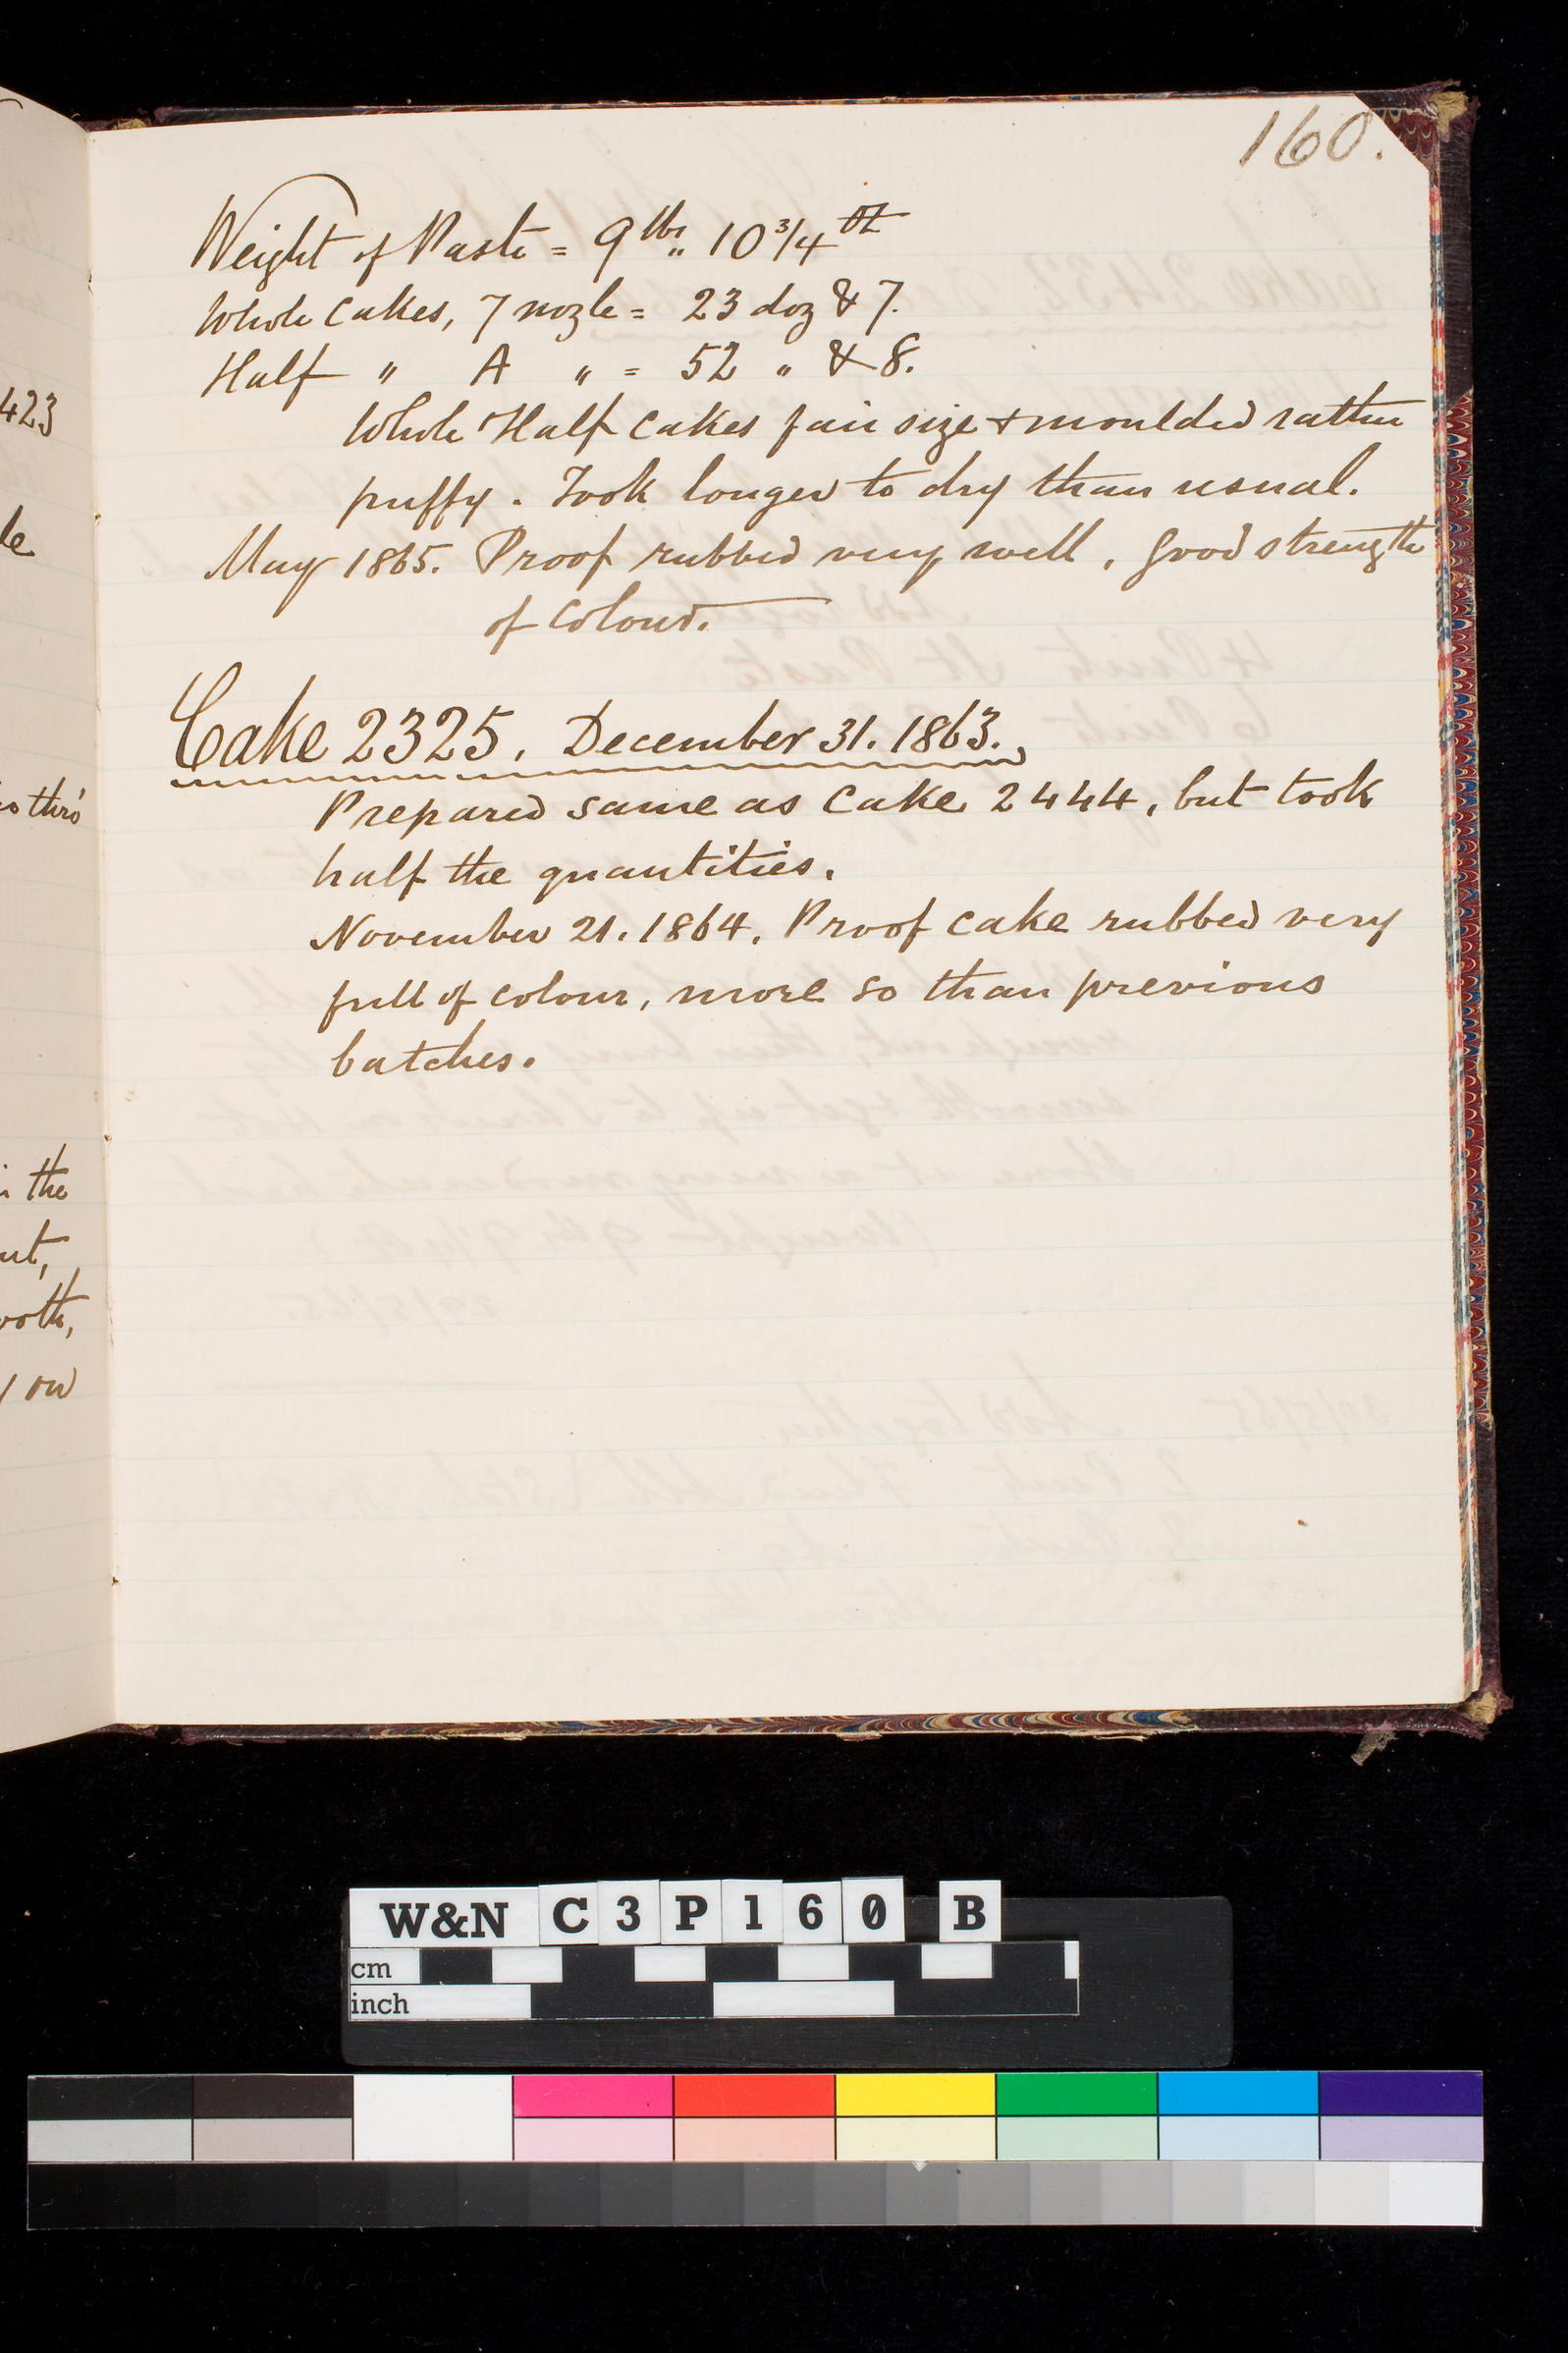 160.
Weight of Paste = 9 lbs " 10 3/4 oz
Whole Cakes, 7 nozle = 23 doz & 7.
Half " A " = 52 " & 8.
Whole Half Cakes fair size & moulded rather
puffy. Took longer to dry than usual.
May 1865. Proof rubbed very well, good strength
of colour.
Cake 2325. December 31. 1863.
Prepared same as Cake 2444, but took
half the quantities.
November 21. 1864. Proof cake rubbed very
full of colour, more so than previous
batches.
423
le
thro'
the
W&N C3P160 B
cm
inch